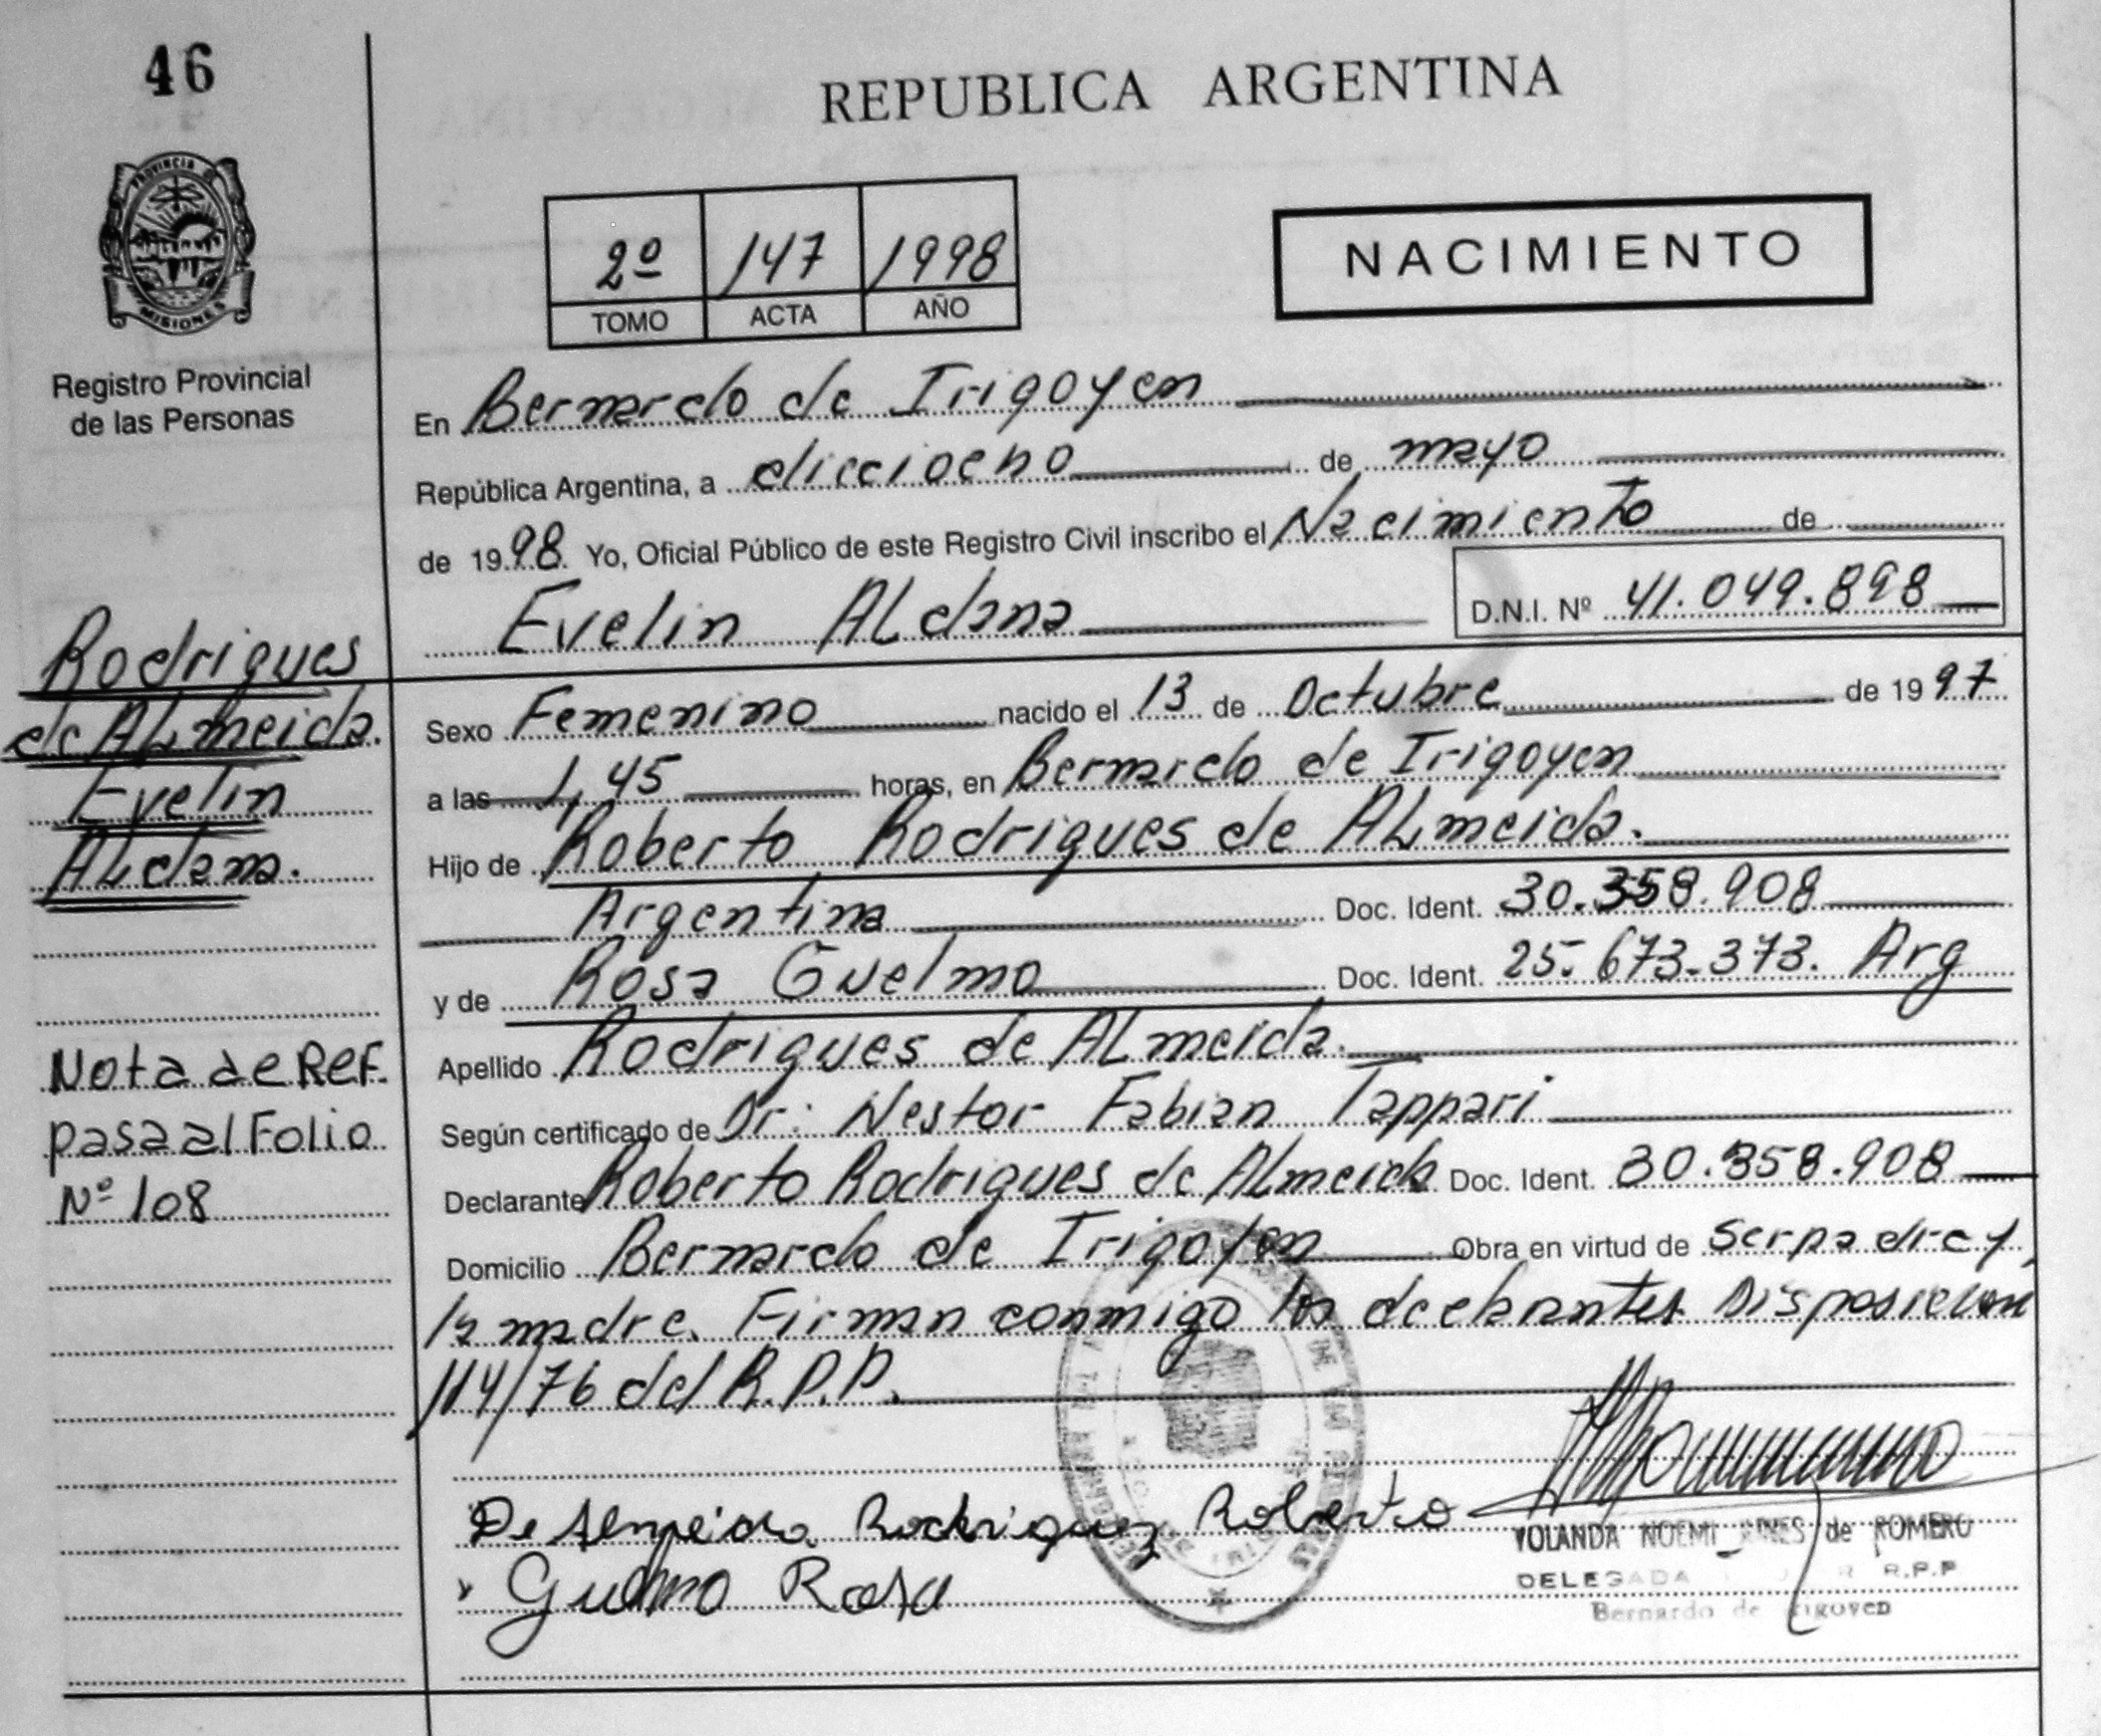 46
REPUBLICA ARGENTINA
PROVINCIA DE
MISIONES
Registro Provincial
de las Personas
2º 147 1998
TOMO ACTA AÑO
NACIMIENTO
En Bernardo de Irigoyen
República Argentina, a diecioeho de mayo
de 1998 Yo, Oficial Público de este Registro Civil inscribo el Nacimiento de
Evelin ALdana D.N.I. Nº 41.049.898
Rodrigues
de ALmeida.
Evelin
ALdana.
Sexo Femenino nacido el 13 de Octubre de 1997
a las 1,45 horas, en Bernardo de Irigoyen
Hijo de Roberto Rodrigues de ALmeida.
Argentina Doc. Ident. 30.358.908
y de Rosa Guelmo Doc. Ident. 25.673.373. Arg
Apellido Rodrigues de ALmeida.
Según certificado de Dr: Nestor Fabian Tappari
Declarante Roberto Rodrigues de ALmeida Doc. Ident. 30.358.908
Domicilio Bernardo de Irigoyen Obra en virtud de ser padre y
la madre. Firman conmigo los declarantes Disposicion
114/76 del R.P.P.
Nota de REF.
pasa al Folio
Nº 108
De Almeida Rodriguez Roberto
Guelmo Rosa
YOLANDA NOEMI de ROMERO
DELEGADA R.P.P
Bernardo de Irigoyen